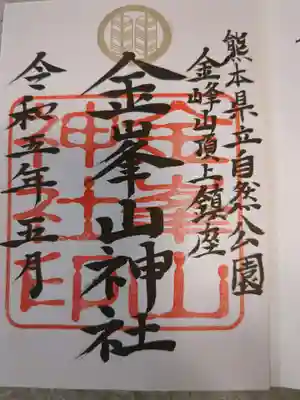 熊本県立自然公園
金峰山頂上鎮座
金峯山神社
令和五年五月
金峯山
神社印